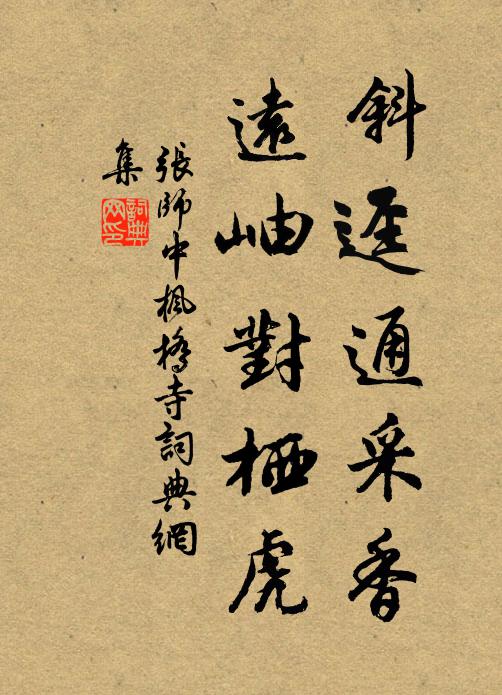 斜逕通采香
遠岫對栖虎
張師中楓橋寺詞典網
集
詞典网印